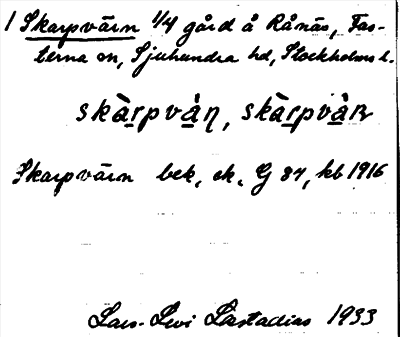 1 Skarpvärn 1/4 gård å Rånäs, Fas-
terna sn, Sjuhundra hd, Stockholms l.
skàrpvàn, skàrpvàr
Skarpvärn bek, ek, G 84, kb 1916
Lars-Levi Læstadius 1933